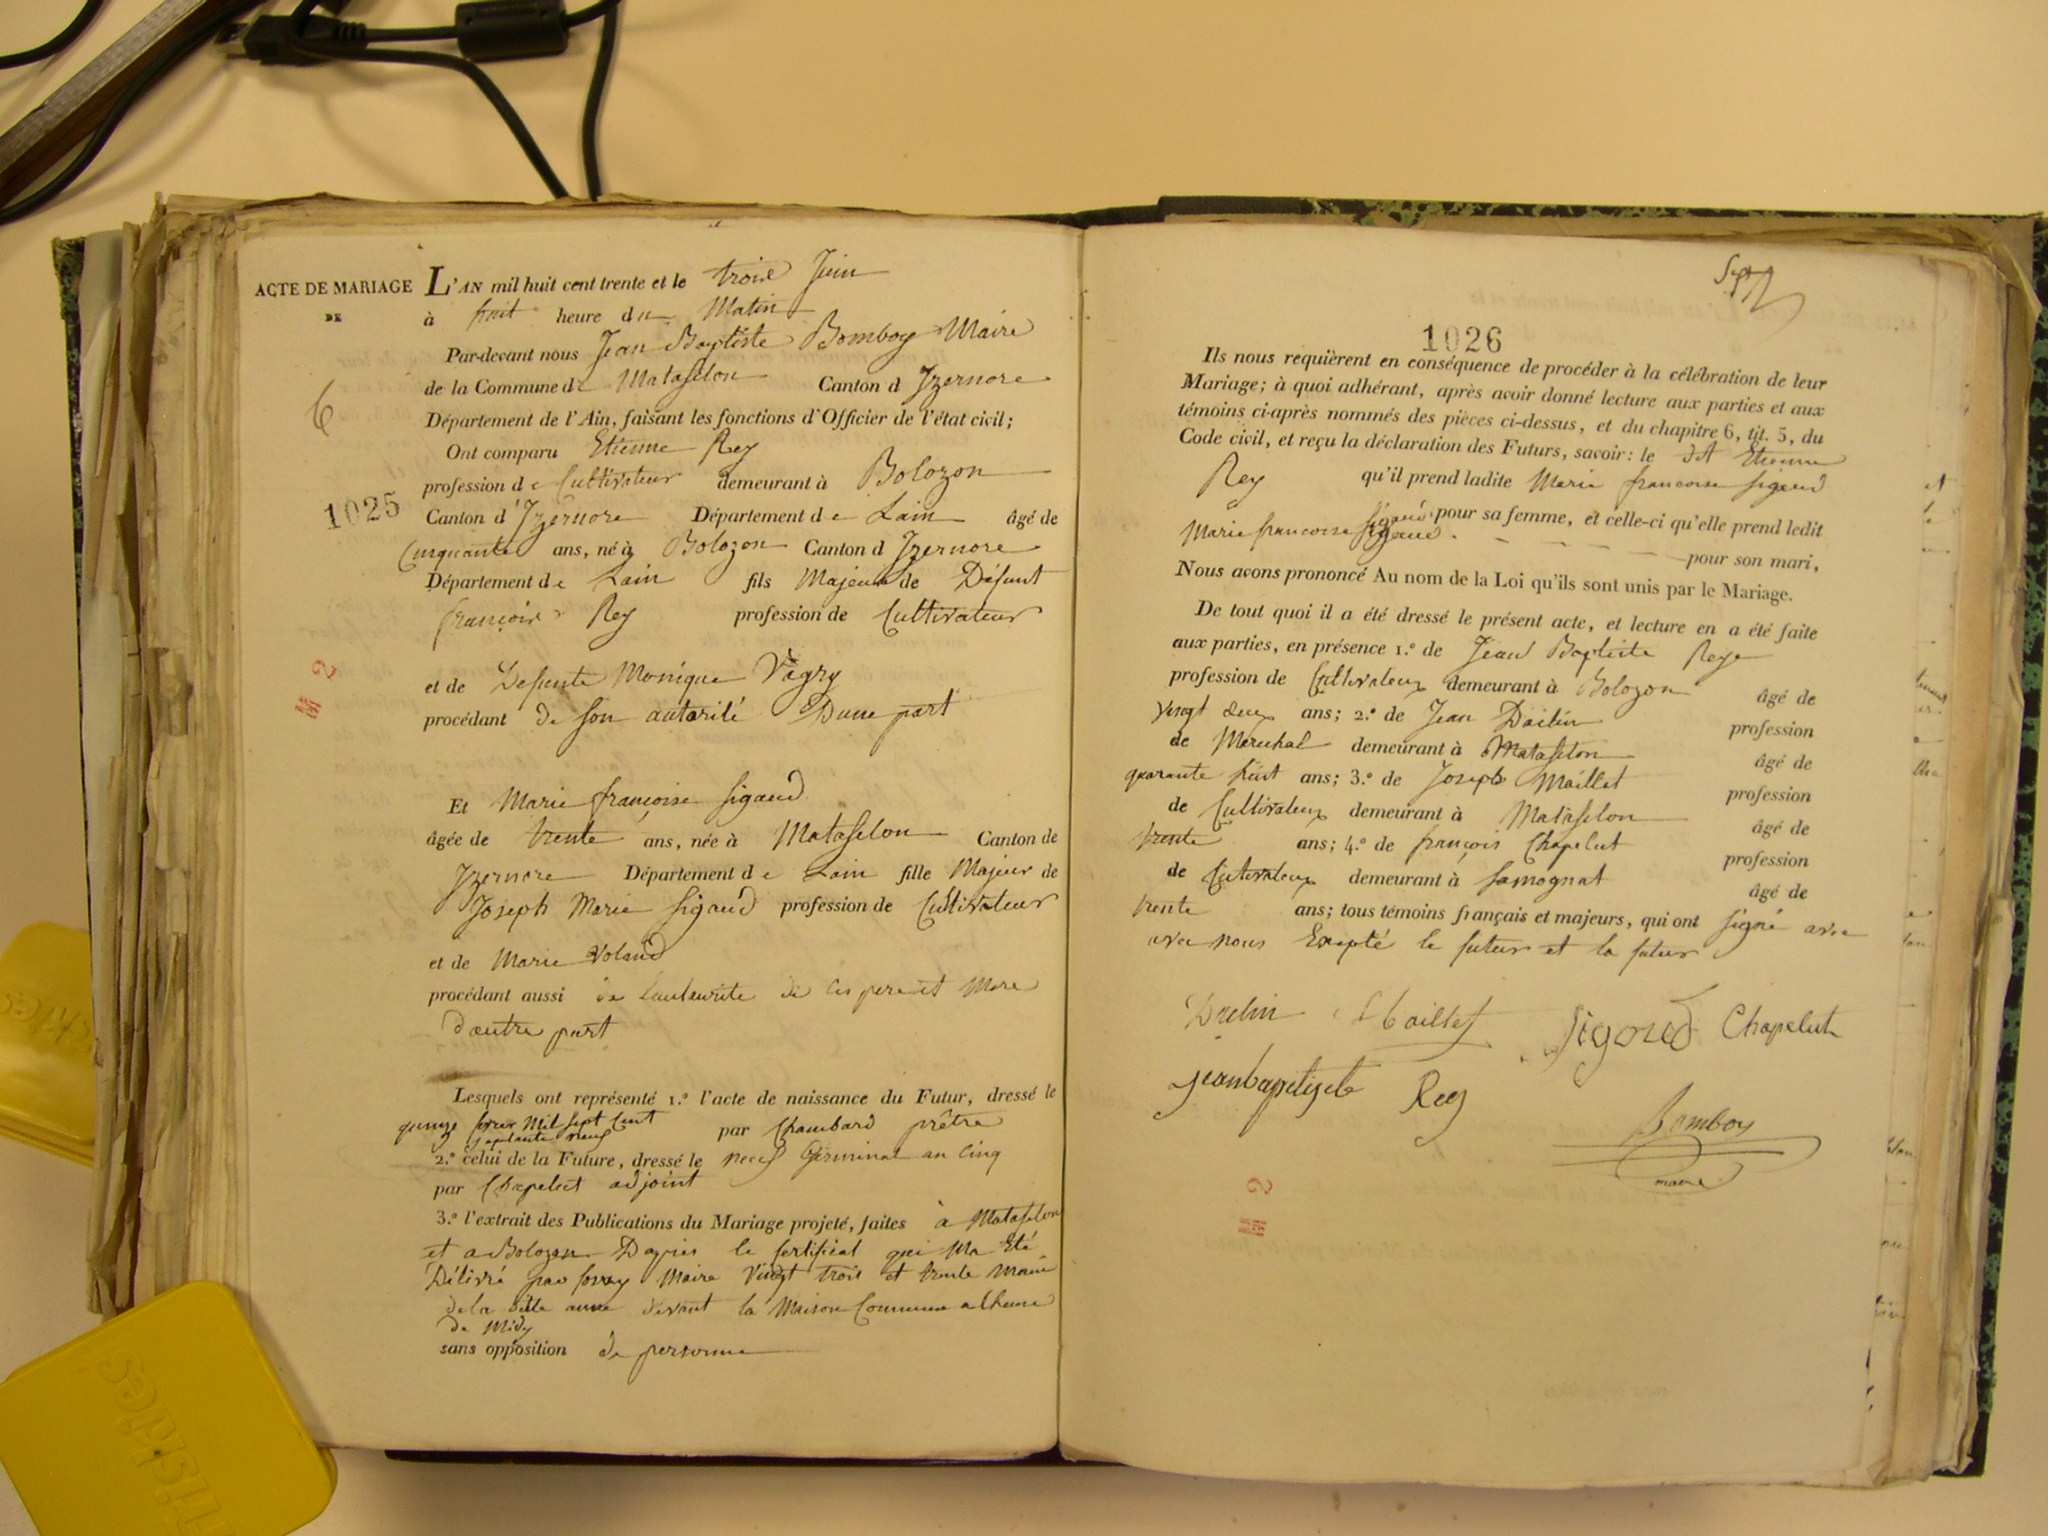 ACTE DE MARIAGE
DE
6
1025
L'AN mil huit cent trente et le troise Juin
à huit heure du Matin
Par-devant nous Jean Baptiste Bomboy Maire
de la Commune de Matafelon Canton d Izernore
Département de l'Ain, faisant les fonctions d'Officier de l'état civil;
Ont comparu Etienne Rey
profession de Cultivateur demeurant à Bolozon
Canton d'Izernore Département de Lain âgé de
Cinquante ans, né à Bolozon Canton d Izernore
Département de Lain fils Majeur de Défunt
françois Rey profession de Cultivateur
et de Defunte Monique Végry
procédant de son autorité Dune part
Et Marie françoise Sigaud
âgée de trente ans, née à Matafelon Canton de
Izernore Département de Lain fille Majeur de
Joseph Marie Sigaud profession de Cultivateur
et de Marie Voland
procédant aussi de Lauteurite de ces pere et Mere
dautre part
Lesquels ont représenté 1.º l'acte de naissance du Futur, dressé le
quinze Mil Sept Cent
par Chambard prêtre
2.º celui de la Future, dressé le neuf Germinal an Cinq
par Chapelut adjoint
3.º l'extrait des Publications du Mariage projeté, faites à Matafelon
et a Bolozon Dapres le Certificat qui Ma Eté
Délivré par Maire Vingt trois et trente Mai
de la dite anne devant la Maison Commune a Lheure
de Midy
sans opposition de personne
1026
Ils nous requièrent en conséquence de procéder à la célébration de leur
Mariage; à quoi adhérant, après avoir donné lecture aux parties et aux
témoins ci-après nommés des pièces ci-dessus, et du chapitre 6, tit. 5, du
Code civil, et reçu la déclaration des Futurs, savoir: le dt Etienne
Rey qu'il prend ladite Marie francoise Sigaud
Marie francoise Sigaud pour sa femme, et celle-ci qu'elle prend ledit
pour son mari,
Nous avons prononcé Au nom de la Loi qu'ils sont unis par le Mariage.
De tout quoi il a été dressé le présent acte, et lecture en a été faite
aux parties, en présence 1.º de Jean Baptiste Reye
profession de Cultivateur demeurant à Bolozon âgé de
Vingt deux ans; 2.º de Jean Daclin profession
de Marechal demeurant à Matafelon âgé de
quarante huit ans; 3.º de Joseph Maillet profession
de Cultivateur demeurant à Matafelon âgé de
trente ans; 4.º de françois Chapelut profession
de Cutivateur demeurant à Samognat âgé de
trente ans; tous témoins français et majeurs, qui ont Signé avec
avec nous Excepté le futur et la futur
Daclin Maillet Sigoud Chapelut
jeanbaptiste Rey
Bomboy
maire